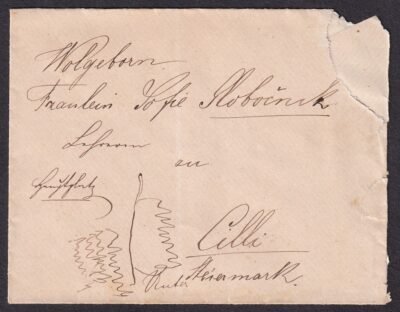 Wolgeborn
Fräulein Sofie Slobočnik
Lehrerin
in
Hauptplatz
Cilli
Unter Steiermark.